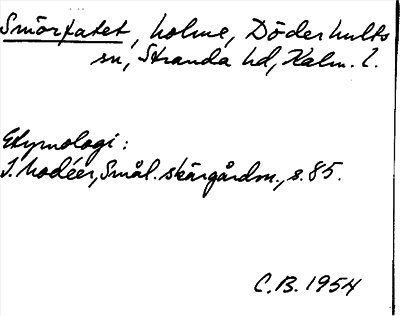 Smörfatet, holme, Döderhults
sn, Stranda hd, Kalm. l.
Etymologi:
I. Modéer, Smål. skärgårdsn., s. 85.
C.B. 1954